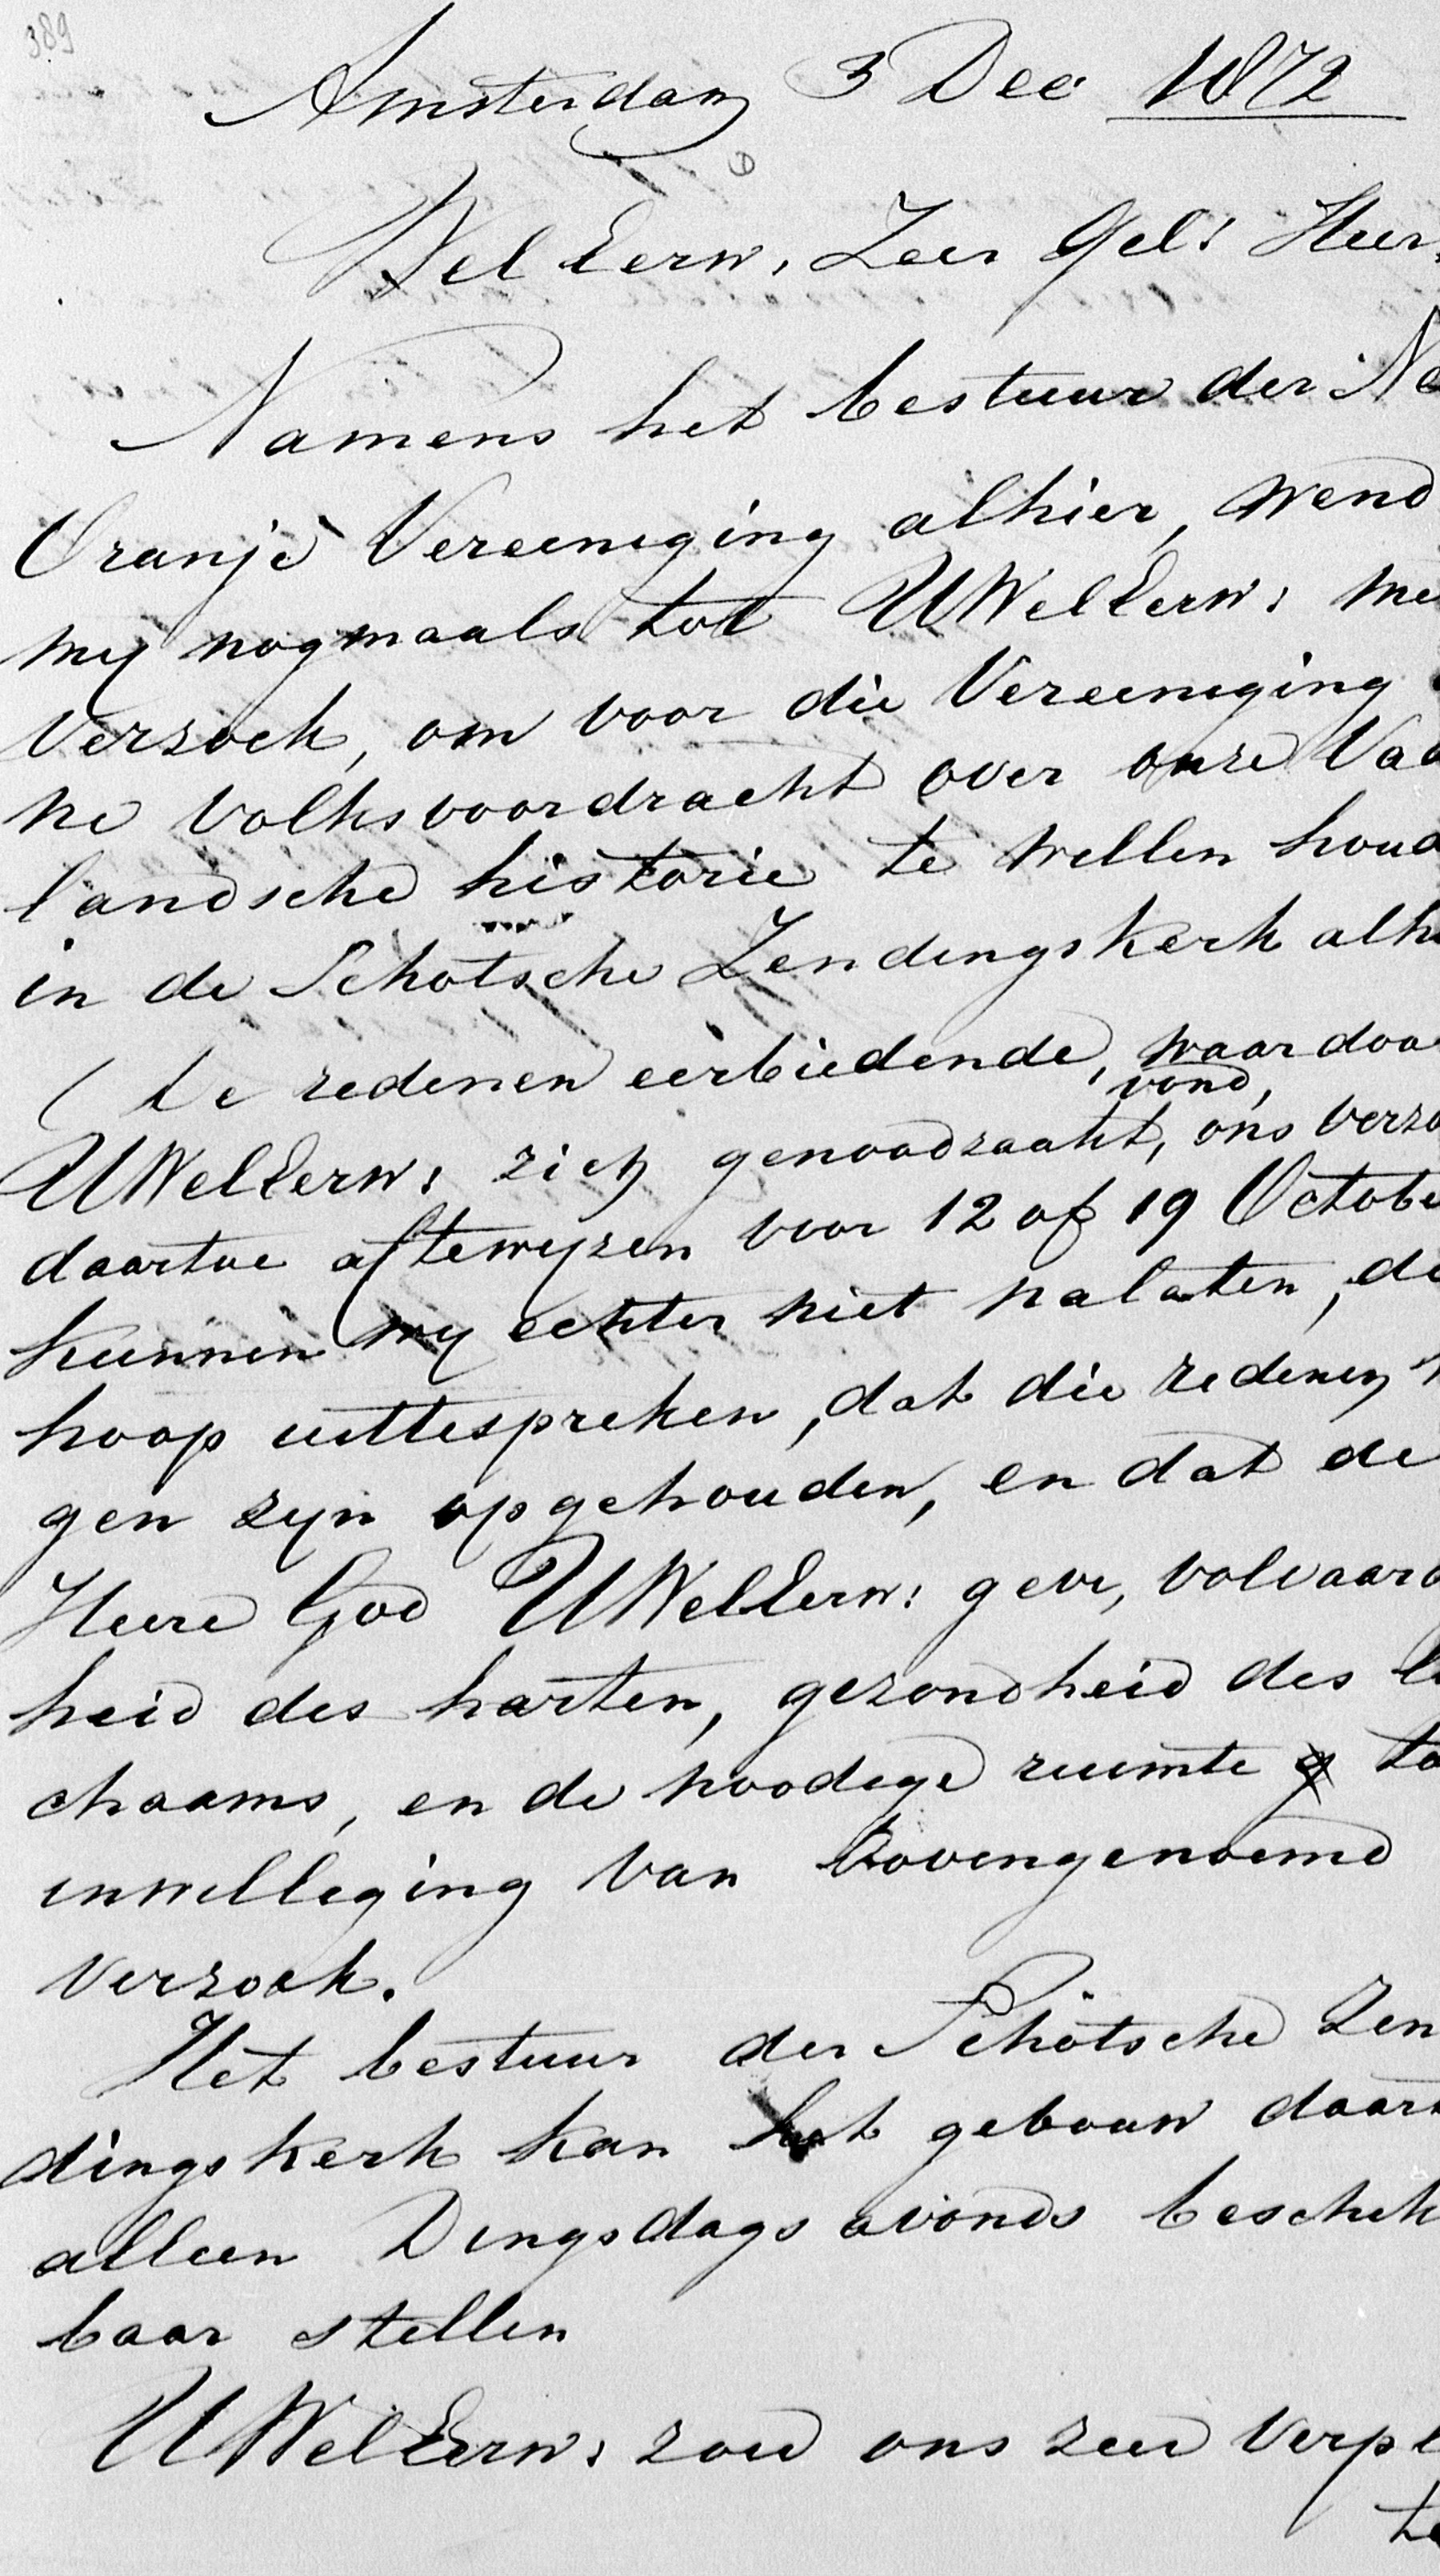 389
Amsterdam 3 Dec 1872
Wel Eerw, Zeer Gel: Heer,
Namens het bestuur der Ne
Oranje Vereeniging alhier, wend
mij nogmaals tot UWelEerw: me
verzoek, om voor die Vereeniging
ne volksvoordracht over onze Vad
landsche historie te willen houd
in de Schotsche Zendingskerk alh
(de redenen eerbiedende, waardoo
vond,
UWelEerw: zich genoodzaakt, ons verzo
daartoe aftewijzen voor 12 of 19 Octobe
kunnen wij echter niet nalaten, de
hoop uittespreken, dat die redenen
gen zijn opgehouden, en dat de
Heere God UWelEerw: geve, volvaard
heid des harten, gezondheid des li
chaams, en de noodige ruimte to
inwilliging van bovengenoemd
verzoek.
Het bestuur der Schotsche Zen
dingskerk kan het gebouw daart
alleen Dingsdags avonds beschik
baar stellen
UWelEerw: zou ons zeer verpl
te